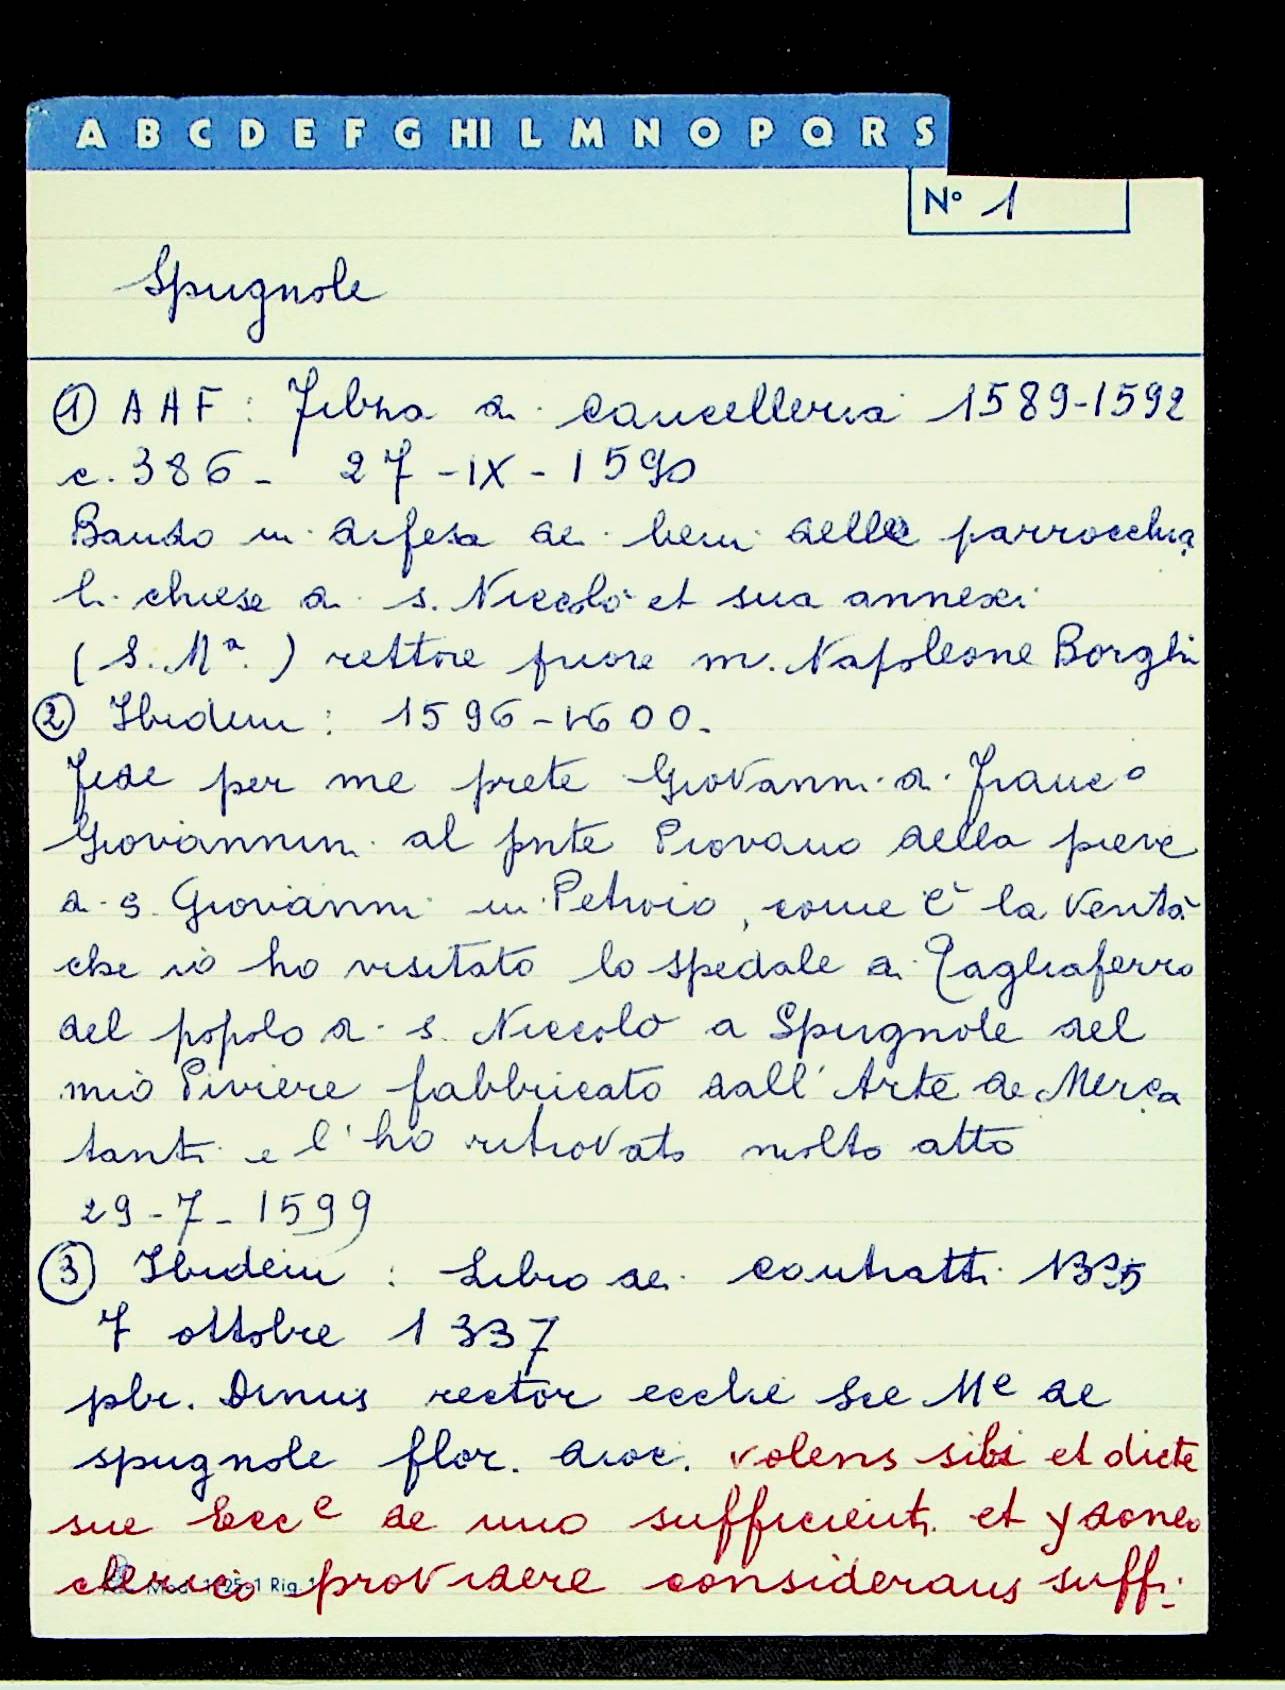 A B C D E F G HI L M N O P Q R S
N° 1
Spugnole
① AAF: Filza di cancelleria 1589-1592
c. 386 - 27-IX-1590
Bando in difesa dei beni delle parrocchia
li chiese di s. Niccolò et sua annexi
(S. Mª.) rettore fuore m. Napoleone Borghi
② Ibidem: 1596-1600.
Fede per me prete Giovanni di Francº
Giovannini al pnte Piovano della pieve
di s. Giovanni in Petroio, come è la verità
che io ho visitato lo spedale di Tagliaferro
del popolo di s. Niccolò a Spugnole del
mio Piviere fabbricato dall'Arte de Merca
tanti e l'ho ritrovato molto atto
29-7-1599
③ Ibidem: Libro dei contratti 1335
7 ottobre 1337
pbr. Dinus rector ecclie Sce Mᵉ de
spugnole flor. dioc. volens sibi et dicte
sue Eccᵉ de uno sufficienti et ydoneo
clerico providere considerans suffi-